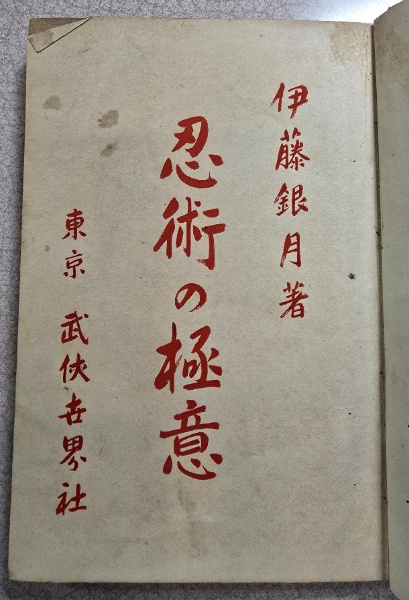 伊藤銀月著
忍術の極意
東京 武侠世界社